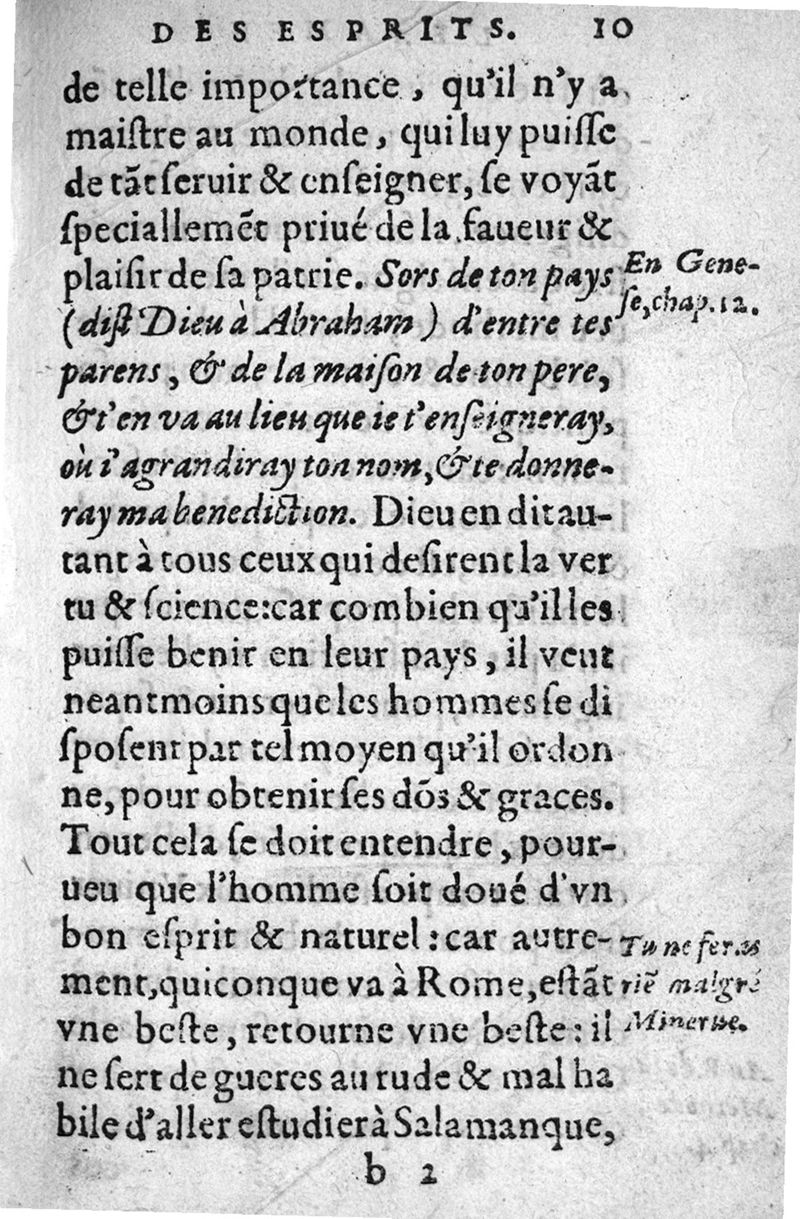 DES ESPRITS. 10
de telle importance, qu'il n'y a
maiſtre au monde, qui luy puiſſe
de tãt ſeruir & enſeigner, ſe voyãt
ſpeciallemẽt priué de la faueur &
plaiſir de ſa patrie. Sors de ton pays
En Gene-
(diſt Dieu à Abraham) d'entre tes
ſe, chap. 12.
parens, & de la maiſon de ton pere,
& t'en va au lieu que ie t'enſeigneray,
où i'agrandiray ton nom, & te donne-
ray ma benediction. Dieu en dit au-
tant à tous ceux qui deſirent la ver
tu & ſcience: car combien qu'il les
puiſſe benir en leur pays, il veut
neantmoins que les hommes ſe di
ſpoſent par tel moyen qu'il ordon
ne, pour obtenir ſes dõs & graces.
Tout cela ſe doit entendre, pour-
ueu que l'homme ſoit doué d'vn
bon eſprit & naturel: car autre-
Tu ne feras
ment, quiconque va à Rome, eſtãt
riẽ malgré
vne beſte, retourne vne beſte: il
Minerue.
ne ſert de gueres au rude & mal ha
bile d'aller eſtudier à Salamanque,
b 2